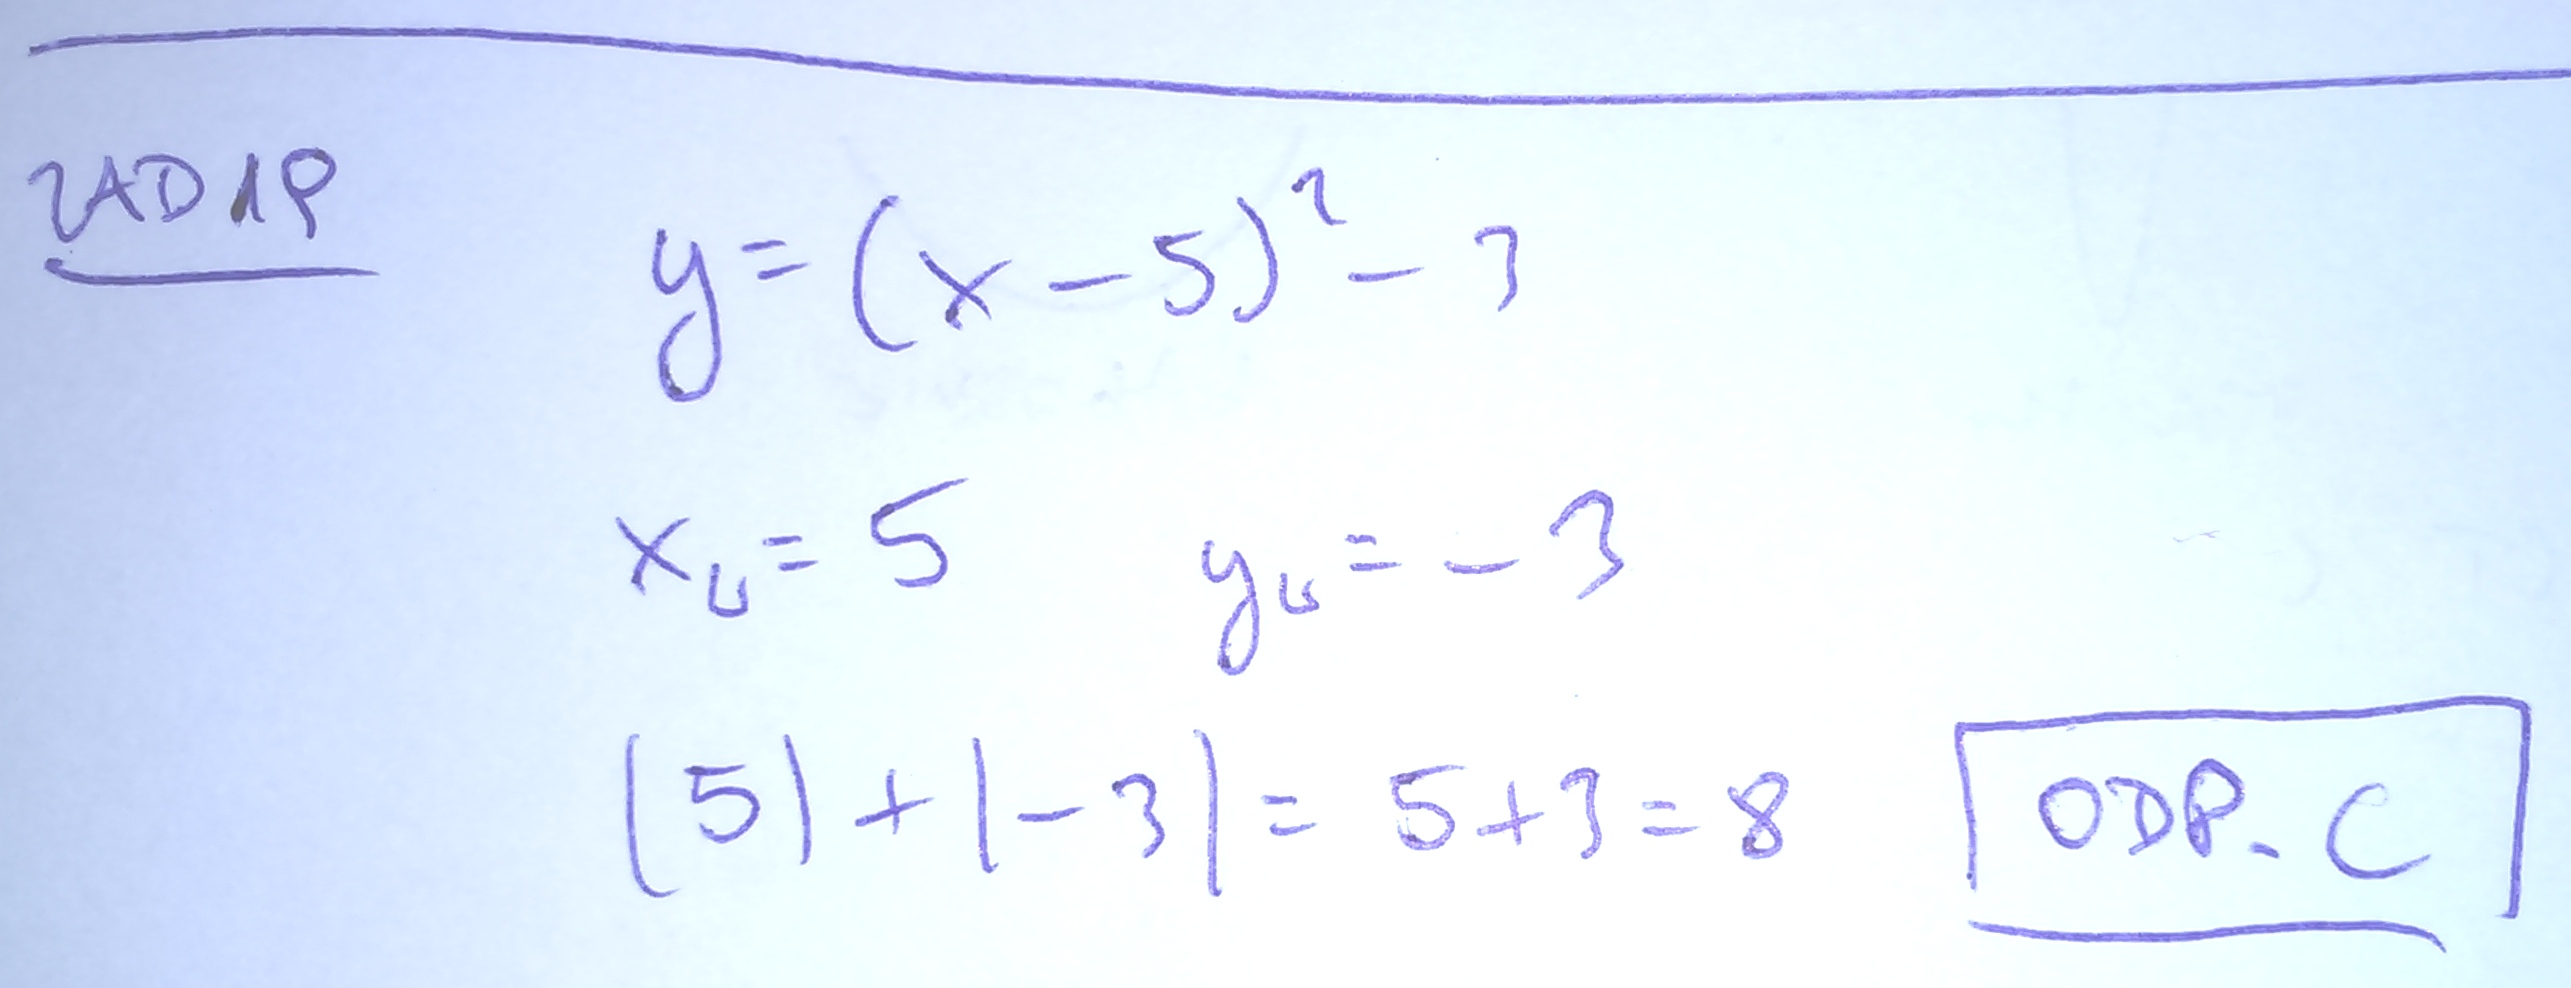 ZAD 19
y = (x - 5)² - 3
xᵤ = 5 yᵤ = - 3
|5| + |-3| = 5+3 = 8 ODP. C